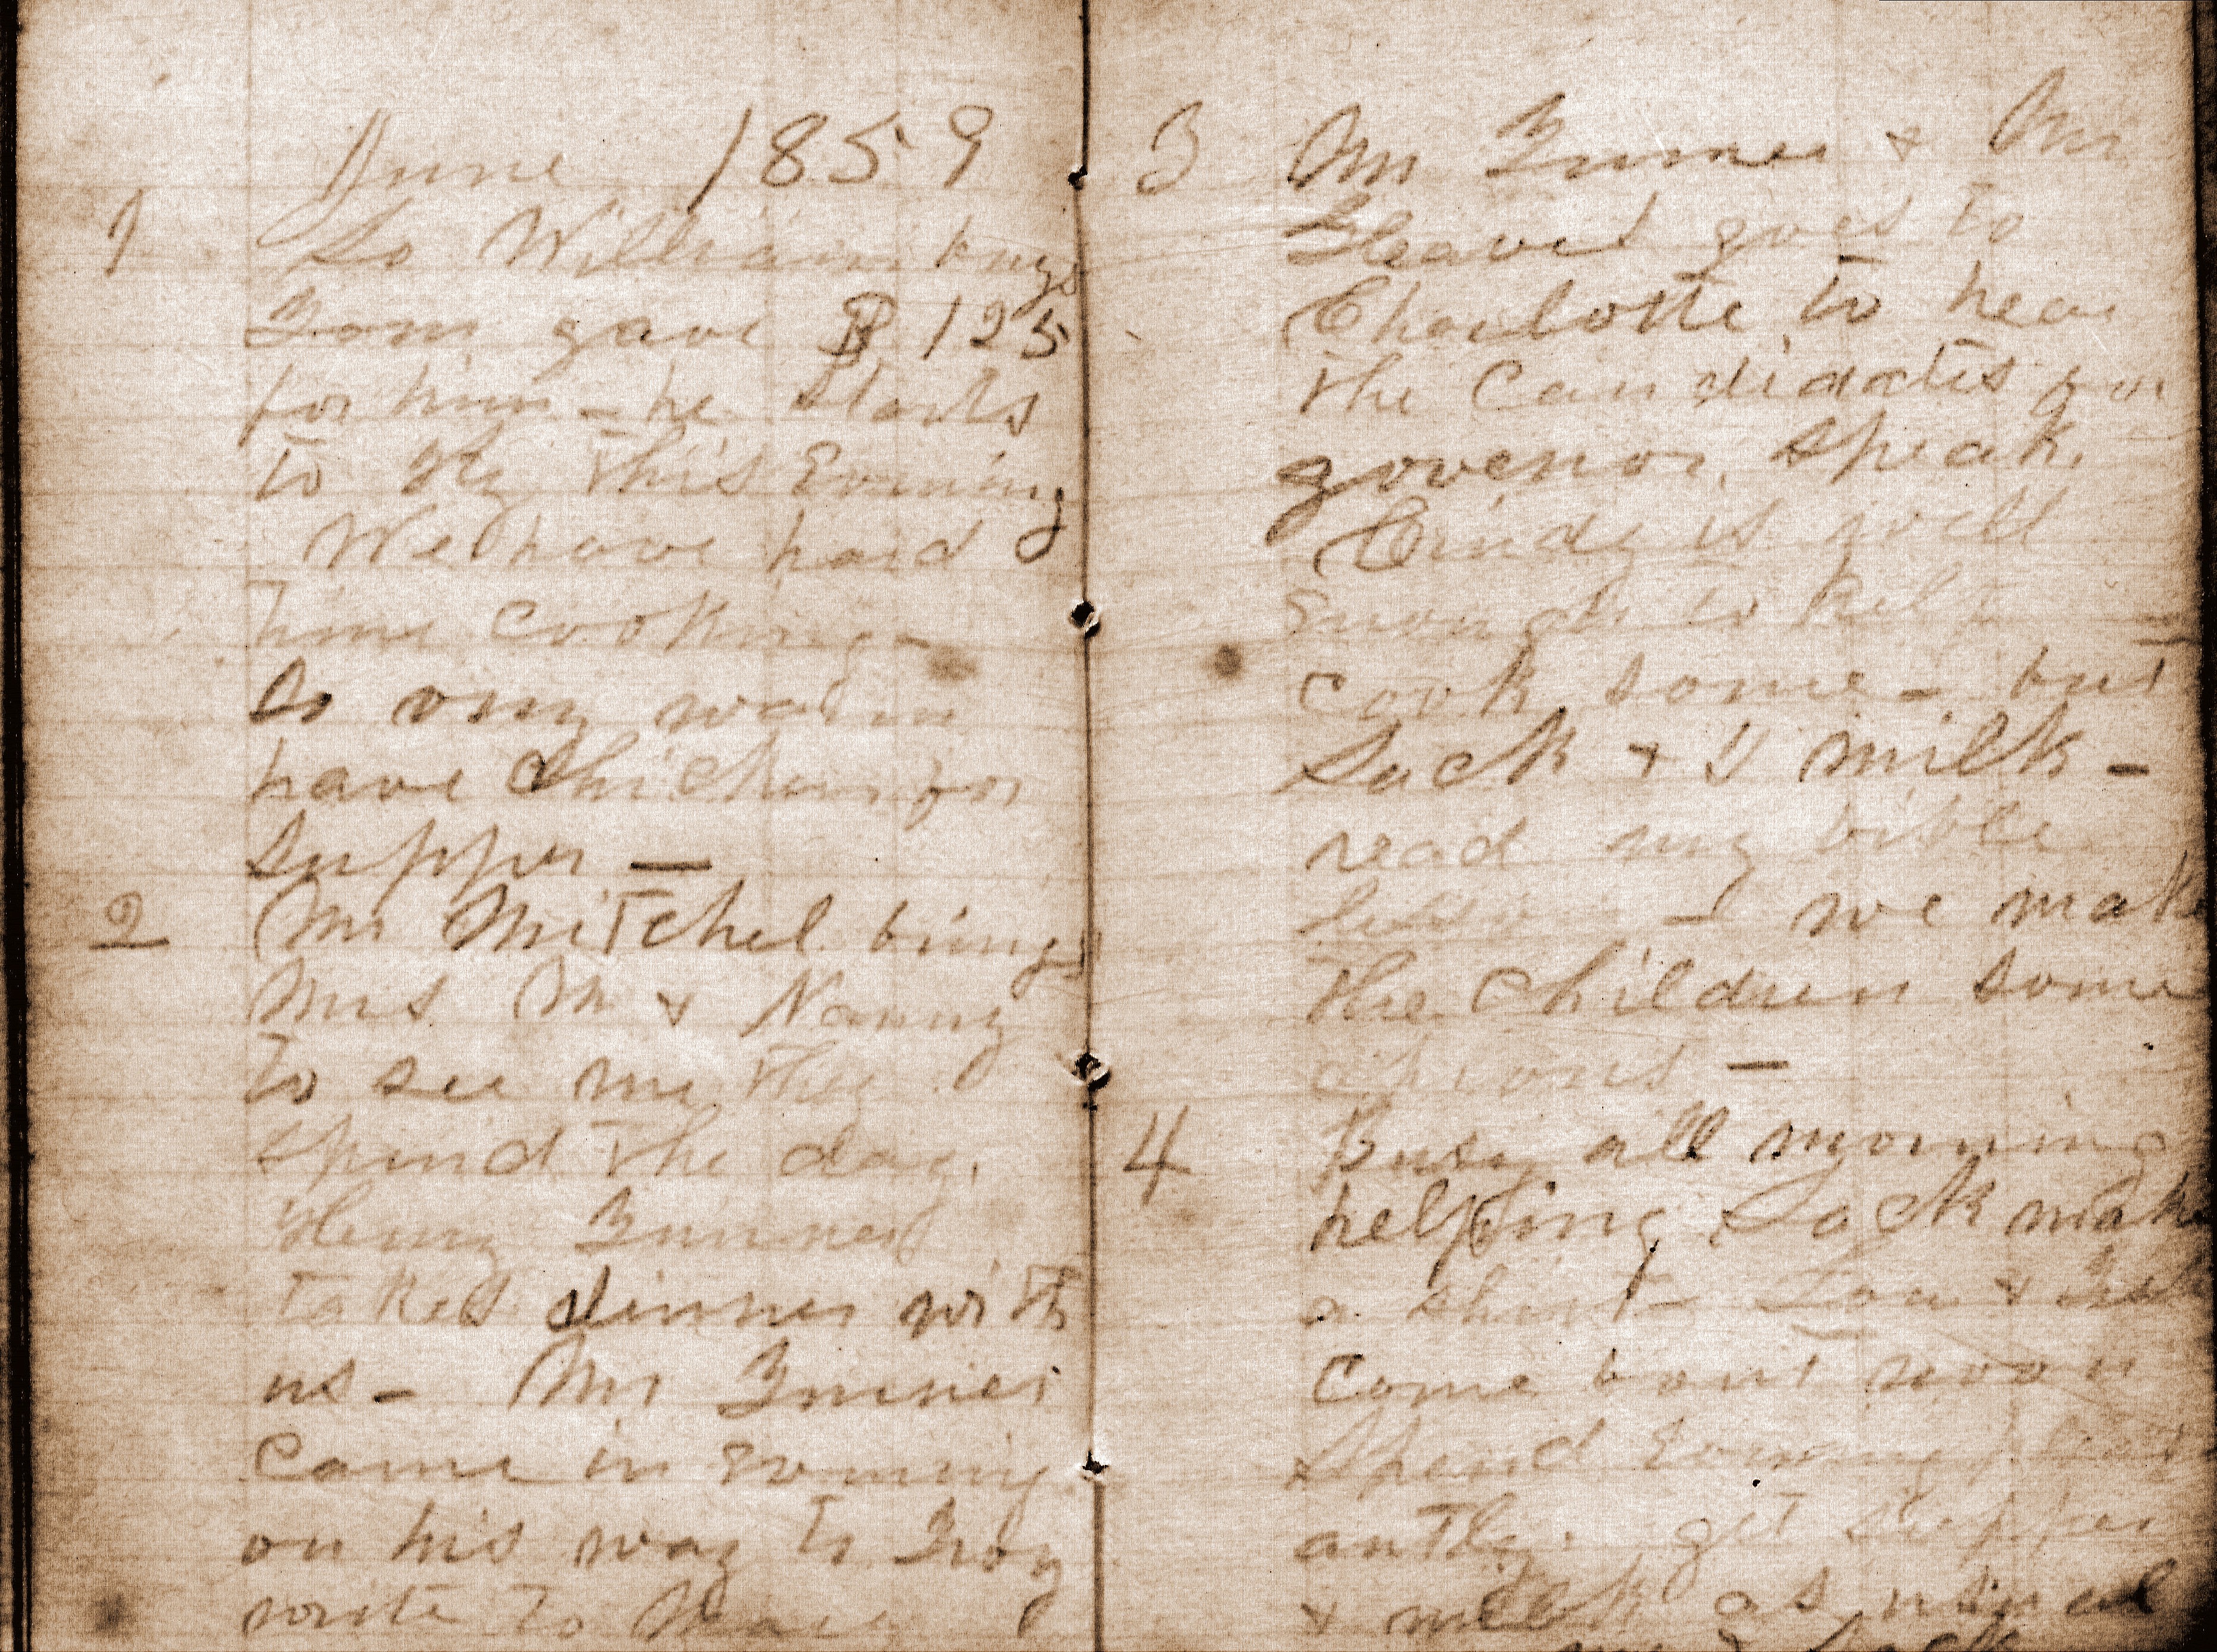 June 1859
1 So William buys
Tom gave $125
for him - he starts
to Ky this Evening
We have hard
time cooking -
So very warm
have chicken for
supper —
2 Mr Mitchel brings
Mrs M & Nanny
to see me they
spend the day.
Henry Turner
takes dinner with
us - Mr Turner
came in evening
on his way to Troy
write to Mary
3 Mr Turner & Mr
Gleaves goes to
Charlotte to hear
the Candidates for
govenor, speak,
Cindy is well
Enough to help
cook some - but
Sack & I milk -
read my bible
lesson - we make
the children some
aprons —
4 Busy all morning
helping Sack make
a shirt - Lou &
come bout noon
Spend Evening pleas
antly. get supper
& milk as usual